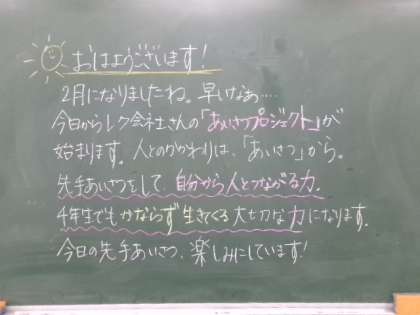 おはようございます!
2月になりましたね。早いなぁ….
今日からレク会社さんの「あいさつプロジェクト」が
始まります。人とのかかわりは、「あいさつ」から。
先手あいさつをして、自分から人とつながる力。
5年生でもかならず生きてくる大切な力になります。
今日の先手あいさつ、楽しみにしています!